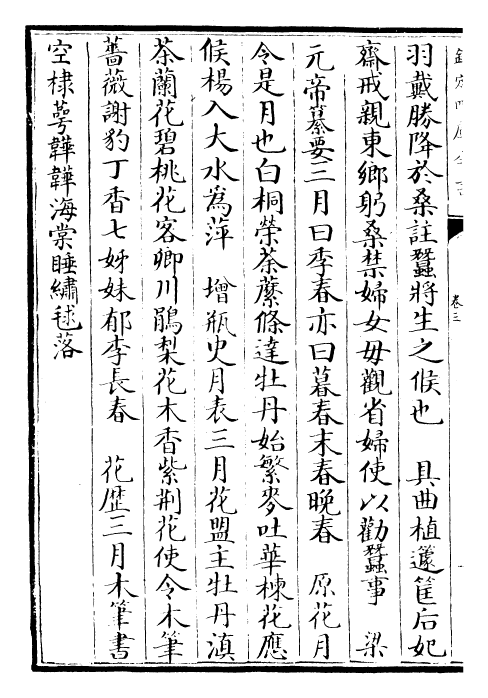 欽定四庫全書
卷三
羽戴勝降於桑註蠶將生之候也　具曲植籧筐后妃
齋戒親東鄉躬桑禁婦女毋觀省婦使以勸蠶事　梁
元帝纂要三月曰季春亦曰暮春末春晚春　原花月
令是月也白桐榮荼蘼條達牡丹始繁麥吐華楝花應
候楊入大水為萍　增瓶史月表三月花盟主牡丹滇
茶蘭花碧桃花客卿川鵑梨花木香紫荆花使令木筆
薔薇謝豹丁香七姊妹郁李長春　花歷三月木筆書
空棣萼韡韡海棠睡繡毬落